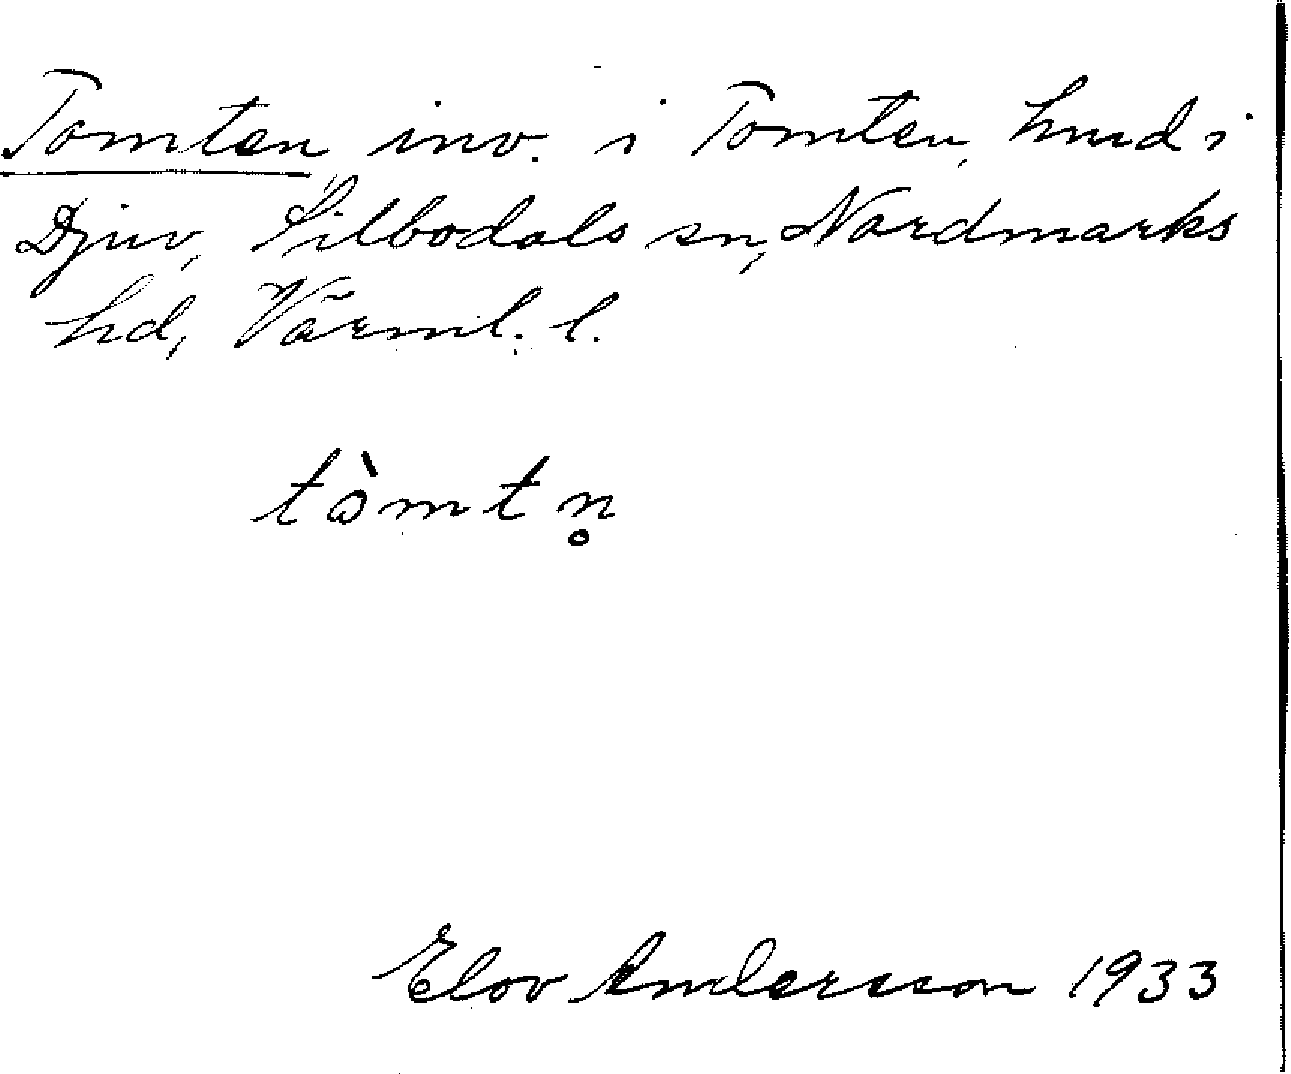 Tomten, inv. i Tomten, hmd i
Djuv, Silbodals sn, Nordmarks
hd, Värml. l.
tòmtn̥
Elov Andersson 1933